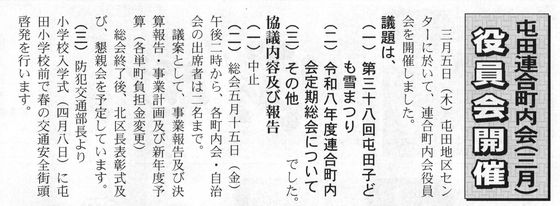 屯田連合町内会(三月)
役員会開催
三月五日(木)屯田地区セン
ターに於いて、連合町内会役員
会を開催しました。
議題は、
(一)第三十八回屯田子ど
も雪まつり
(二)令和八年度連合町内
会定期総会について
(三)その他 でした。
協議内容及び報告
(一)中止
(二)総会五月十五日(金)
午後二時から、各町内会・自治
会の出席者は二名まで。
議案として、事業報告及び決
算報告・事業計画及び新年度予
算(各単町負担金変更)
総会終了後、北区長表彰式及
び、懇親会を予定しています。
(三)防犯交通部長より
小学校入学式(四月八日)に屯
田小学校前で春の交通安全街頭
啓発を行います。